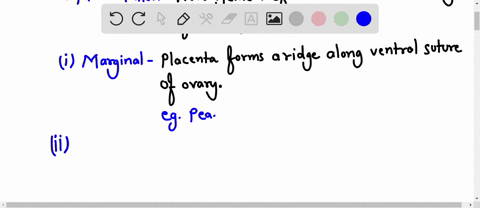 (i) Marginal - Placenta forms a ridge along ventral suture
of ovary.
eg. Pea.
(ii)